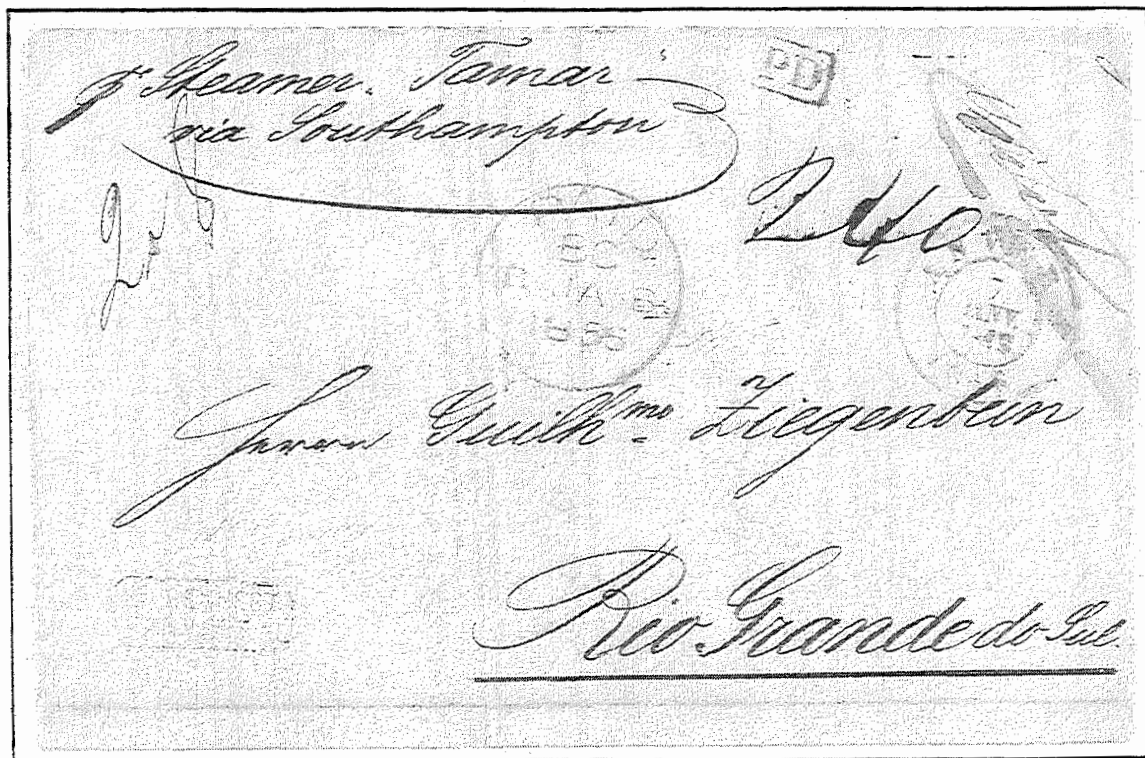 pr Steamer. Tamar
via Southampton
PD
240
Herrn Guilhmo Ziegenbein
Rio Grande do Sul.